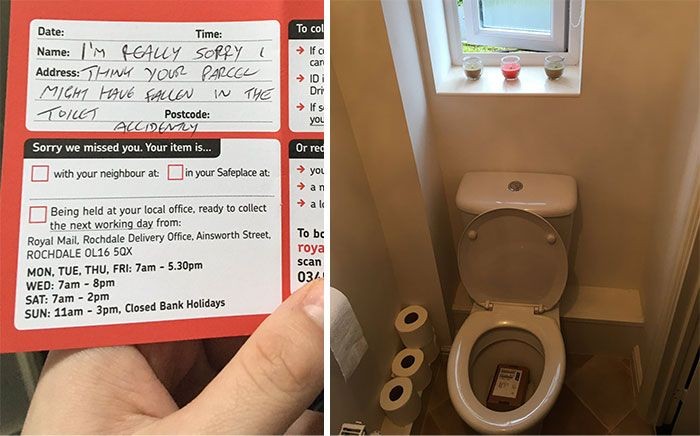 Date: Time:
Name: I'M REALLY SORRY I
Address: THINK YOUR PARCEL
MIGHT HAVE FALLEN IN THE
TOILET Postcode:
ACCIDENTLY
Sorry we missed you. Your item is...
with your neighbour at: in your Safeplace at:
Being held at your local office, ready to collect
the next working day from:
Royal Mail, Rochdale Delivery Office, Ainsworth Street,
ROCHDALE OL16 5QX
MON, TUE, THU, FRI: 7am - 5.30pm
WED: 7am - 8pm
SAT: 7am - 2pm
SUN: 11am - 3pm, Closed Bank Holidays
To col
If c
car
ID i
Dri
If s
you
Or rec
you
a n
a l
To bo
roya
scan
034